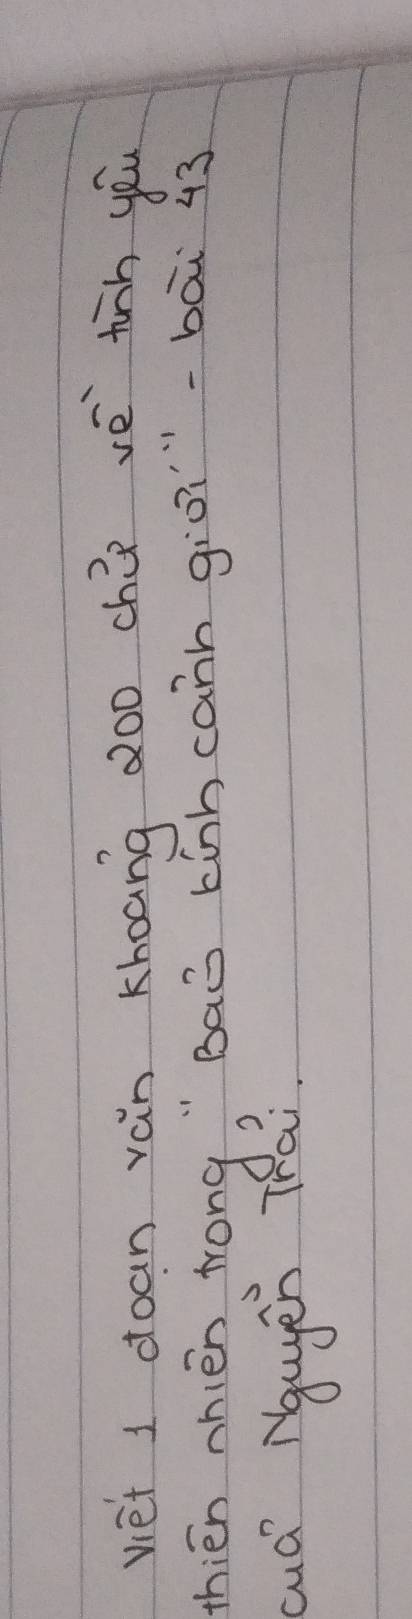 Viết 1 đoạn văn khoảng 200 chữ về tình yêu
thiên nhiên trong "Bảo kính cảnh giới" - bài 43
của Nguyễn Trãi.